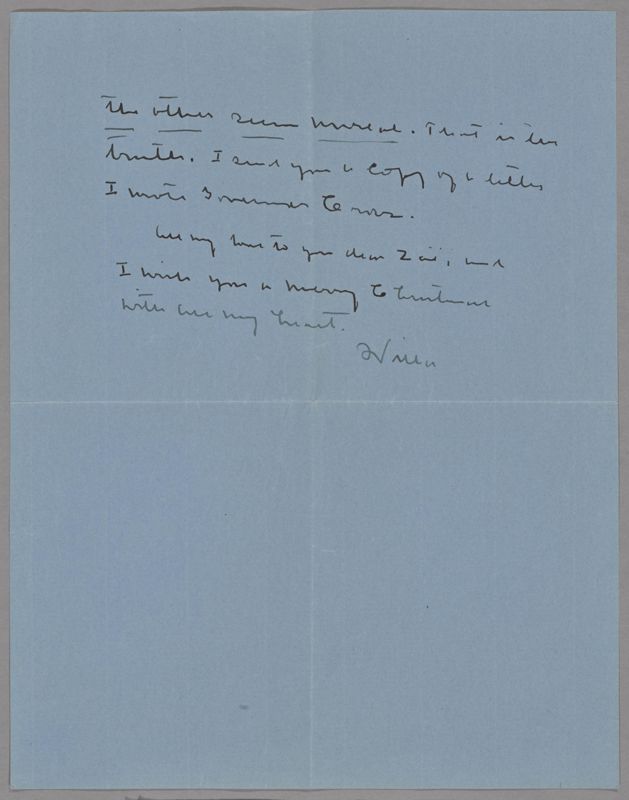 the other seem unreal. That is the
truth. I send you a copy of a letter
I wrote Governor Cross.
All my love to you dear Zoë, and
I wish you a Merry Christmas
with all my heart.
Willa